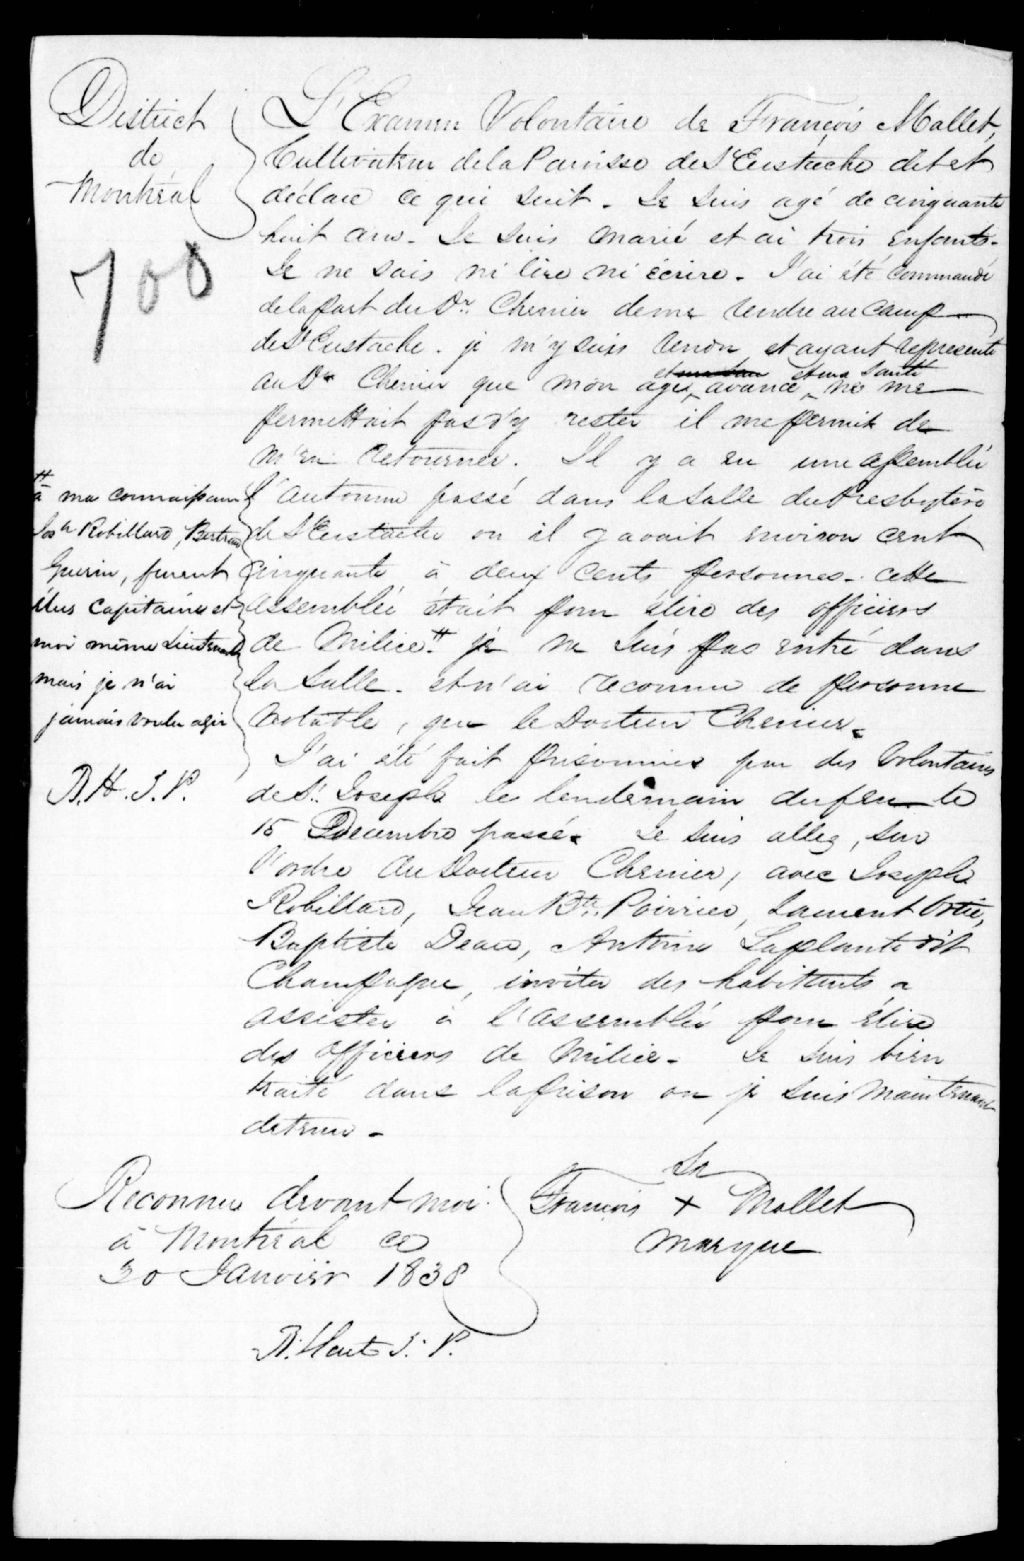 District
de
Montréal
700
L'Examen Volontaire de François Mallet,
Cultivateur de la Paroisse de St Eustache dit et
déclare ce qui suit - Je suis agé de cinquante
huit ans - Je suis marié et ai trois enfants -
Je ne sais ni lire ni écrire - J'ai été commandé
de la part du Dr. Chenier de me rendre au Camp
de St Eustache. je m'y suis rendu et ayant representé
et ma santé
au Dr Chenier que mon age avancé ne me
permettait pas d'y rester il me permit de
m'en retourner. Il y a eu une assemblée
l'automne passé dans la salle du Presbytère
de St Eustache ou il y avait environ cent
cinquante à deux cents personnes - cette
assemblée était pour élire des officiers
de Milice # je ne suis pas entré dans
la salle - et n'ai reconnu de personne
notable, que le Docteur Chenier.
# à ma connaissance
Josh Robillard, Bertrand
Guerin, furent
élus Capitaine et
moi même Lieutenant
mais je n'ai
jamais voulu agir
B.H. J.P.
J'ai été fait prisonnier par des Volontaires
de St. Joseph le lendemain du feu le
15 Decembre passé. Je suis allez, sur
l'ordre du Docteur Chenier, avec Joseph
Robillard, Jean Bte. Poirrier, Laurent Ortie,
Baptiste Deau, Antoine Laplante dit
Champagne, inviter des habitants a
assister à l'assemblée pour élire
des officiers de milice - Je suis bien
traité dans la prison ou je suis maintenant
detenu -
Reconnu devant moi
à Montréal ce
30 Janvier 1838
B. Hart J. P.
Sa
François + Mallet
marque